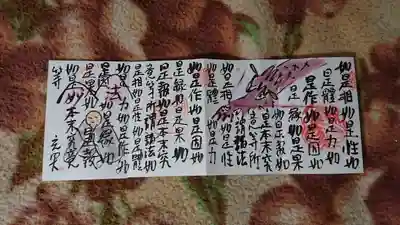 如是相如是性如
是體如是力如
是作如是因如
是緣如是果
如是報如
是本末究
竟等所
謂諸法
如是相如是性
如是體如是力
如是作如是因如
是緣如是果如
是報如是本末究
竟等所謂諸法
如是相如是性
如是力如是作
是因如是緣如
是果如是報
如是本末究竟
等